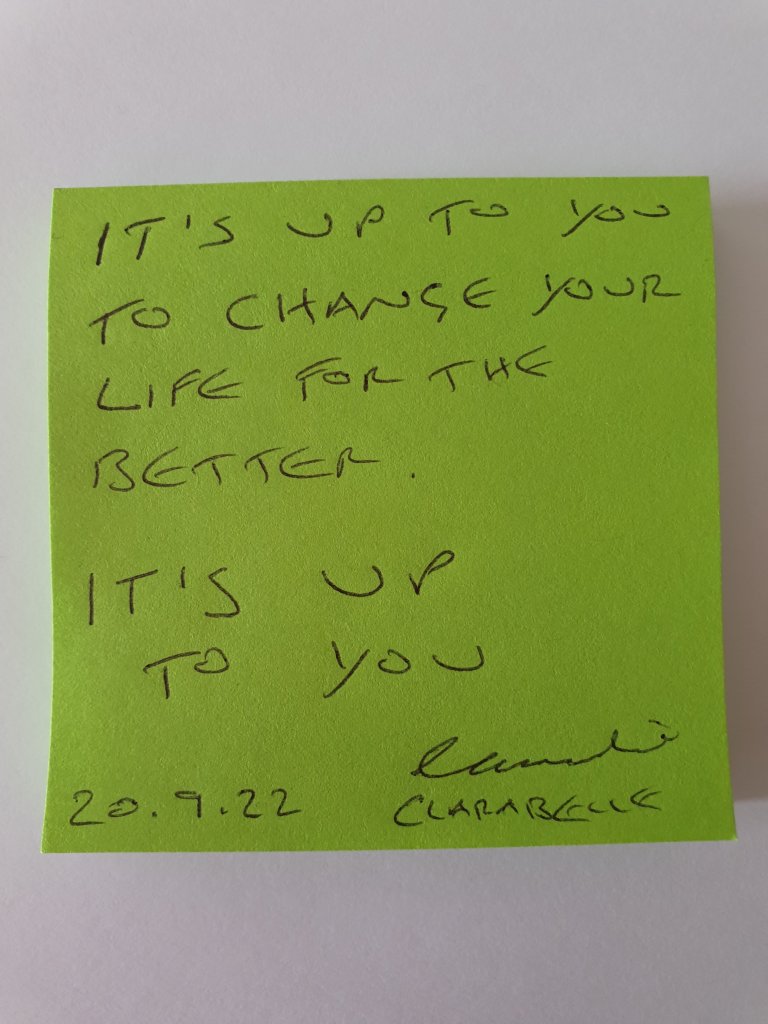 IT'S UP TO YOU
TO CHANGE YOUR
LIFE FOR THE
BETTER.
IT'S UP
TO YOU
20.9.22 CLARABELLE